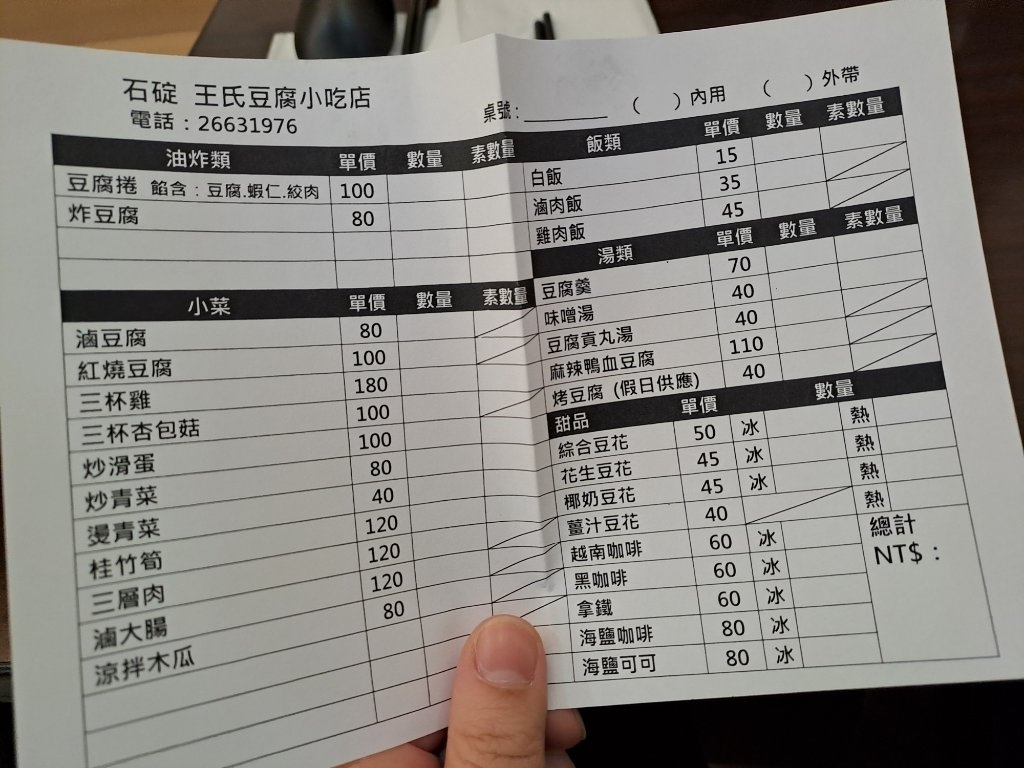 石碇 王氏豆腐小吃店
電話：26631976
桌號：________ （ ）內用 （ ）外帶
油炸類 單價 數量 素數量
豆腐捲 餡含：豆腐.蝦仁.絞肉 100
炸豆腐 80
小菜 單價 數量 素數量
滷豆腐 80
紅燒豆腐 100
三杯雞 180
三杯杏包菇 100
炒滑蛋 100
炒青菜 80
燙青菜 40
桂竹筍 120
三層肉 120
滷大腸 120
涼拌木瓜 80
飯類 單價 數量 素數量
白飯 15
滷肉飯 35
雞肉飯 45
湯類 單價 數量 素數量
豆腐羹 70
味噌湯 40
豆腐貢丸湯 40
麻辣鴨血豆腐 110
烤豆腐 (假日供應) 40
甜品 單價 數量
綜合豆花 50 冰 熱
花生豆花 45 冰 熱
椰奶豆花 45 冰 熱
薑汁豆花 40 熱
越南咖啡 60 冰
黑咖啡 60 冰
拿鐵 60 冰
海鹽咖啡 80 冰
海鹽可可 80 冰
總計
NT$：